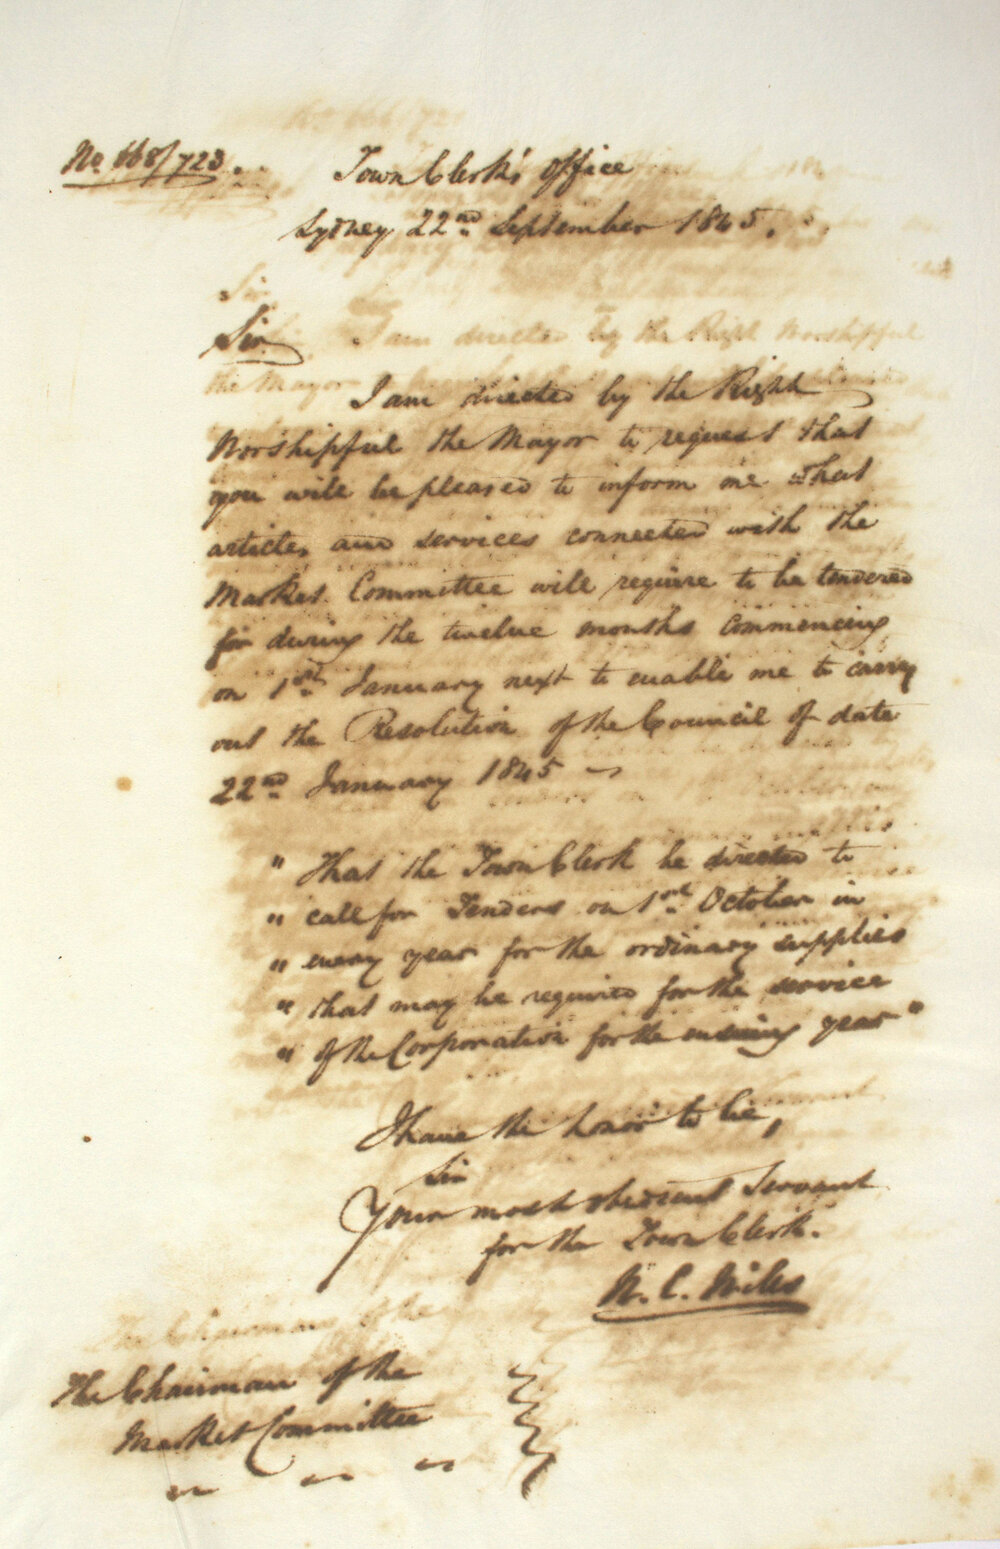 No. 668/723.
Town Clerk's Office
Sydney 22nd September 1845.
Sir
I am directed by the Right
Worshipful the Mayor to request that
you will be pleased to inform me what
articles and services connected with the
Market Committee will require to be tendered
for during the twelve months commencing
on 1st January next to enable me to carry
out the Resolution of the Council of date
22nd January 1845 —
" That the Town Clerk be directed to
" call for Tenders on 1st October in
" every year for the ordinary supplies
" that may be required for the service
" of the Corporation for the ensuing year "
I have the honor to be,
Sir
Your most obedient Servant
for the Town Clerk.
W. C. Wills
The Chairman of the
Market Committee